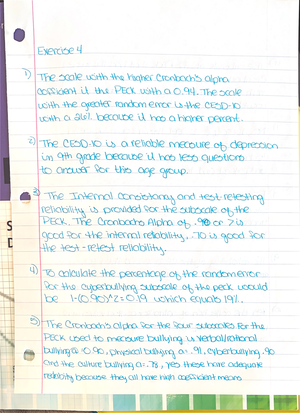 Exercise 4
1) The scale with the higher Cronbach's alpha
coefficient is the PECK with a 0.94. The scale
with the greater random error is the CESD-10
with a 26% because it has a higher percent.
2) The CESD-10 is a reliable measure of depression
in 9th grade because it has less questions
to answer for this age group.
3) The Internal consistency and test retesting
reliability is provided for the subscale of the
PECK. The Cronbachs Alpha of .90 or > is
good for the internal reliability, .70 is good for
the test-retest reliability.
4) To calculate the percentage of the random error
for the cyberbullying subscale of the peck would
be 1-(0.90)^2=0.19 which equals 19%.
5) The Cronbach's alpha for the four subscales for the
PECK used to measure bullying is verbal/rational
bullying is 0.90, physical bullying a= .91, cyberbullying .90
and the culture bullying a= .78, yes these have adequate
reliability because they all have high coefficient means
S
D